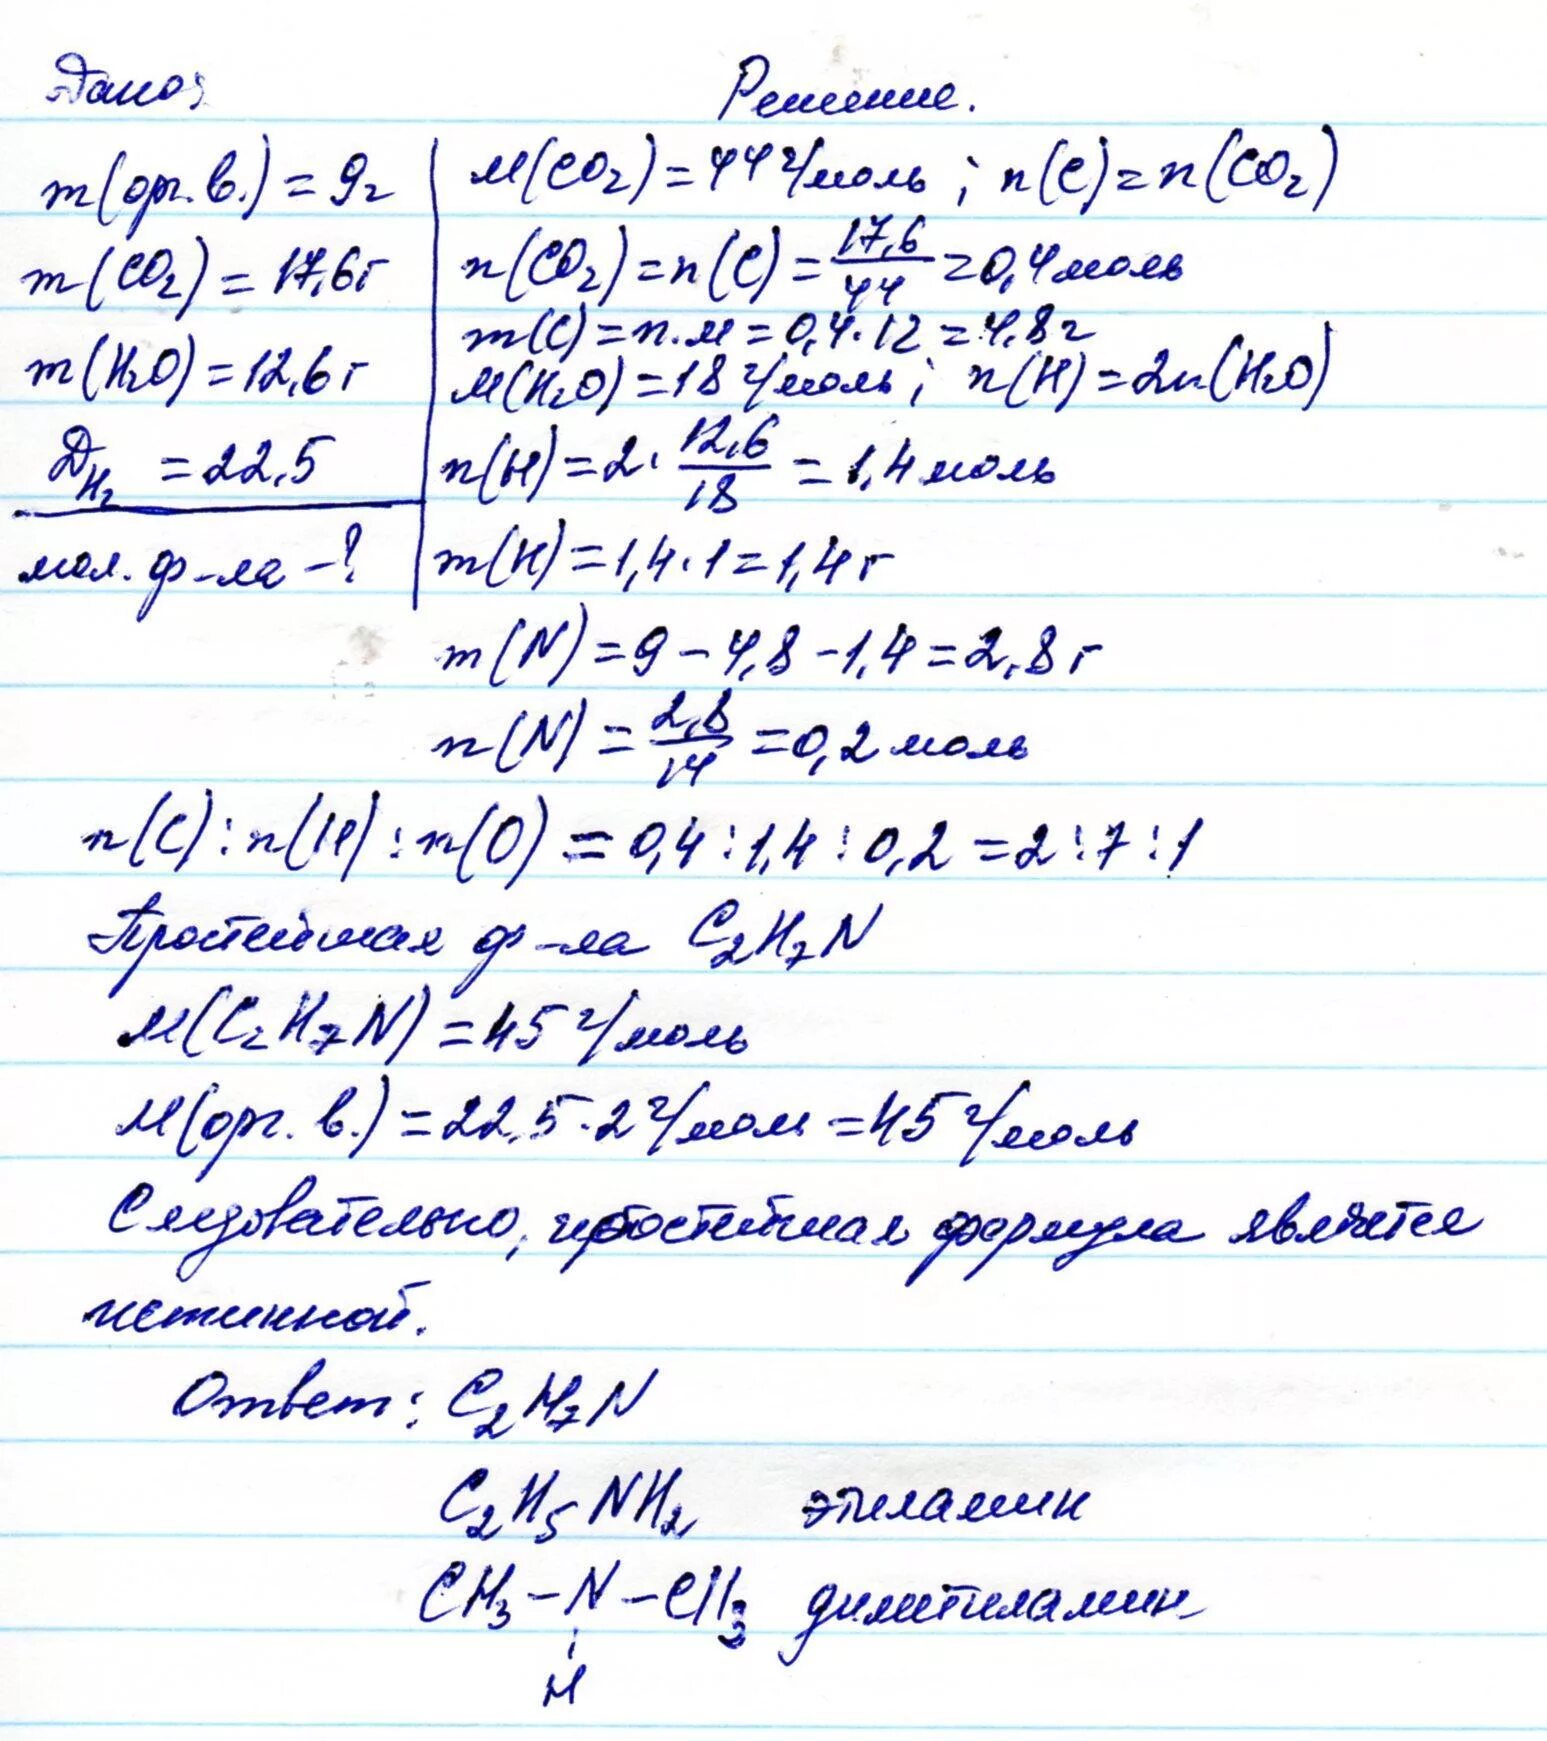 Дано:
m(орг.в.) = 9г
m(CO₂) = 17,6г
m(H₂O) = 12,6г
D_H₂ = 22,5
мол. ф-ла - ?
Решение.
M(CO₂) = 44 г/моль ; n(C) = n(CO₂)
n(CO₂) = n(C) = 17,6/44 = 0,4 моль
m(C) = n.м = 0,4·12 = 4,8г
M(H₂O) = 18 г/моль ; n(H) = 2n(H₂O)
n(H) = 2· 12,6/18 = 1,4 моль
m(H) = 1,4·1 = 1,4г
m(N) = 9 - 4,8 - 1,4 = 2,8г
n(N) = 2,8/14 = 0,2 моль
n(C) : n(H) : n(O) = 0,4 : 1,4 : 0,2 = 2 : 7 : 1
Простейшая ф-ла C₂H₇N
M(C₂H₇N) = 45 г/моль
M(орг. в.) = 22,5·2 г/моль = 45 г/моль
Следовательно, простейшая формула является
истинной.
Ответ: C₂H₇N
C₂H₅NH₂ этиламин
CH₃ - N - CH₃ диметиламин
H